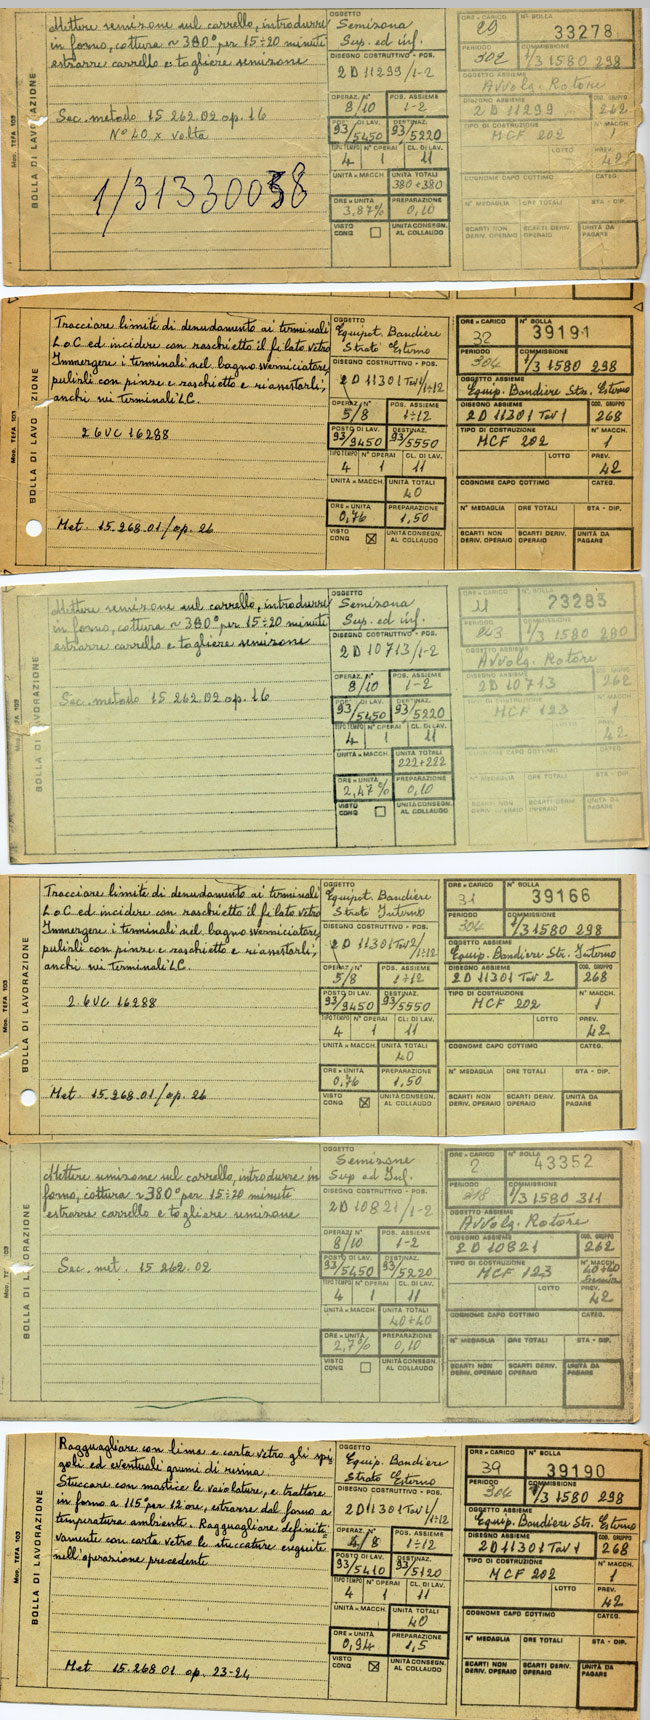 Mod. TEFA 103
BOLLA DI LAVORAZIONE
Mettere semizone sul carrello, introdurre
in forno, cottura ~ 380° per 15÷20 minuti
estrarre carrello e togliere semizone
Sec. metodo 15 262.02 op. 16
N° 40 x volta
OGGETTO
Semizona
Sup. ed inf.
DISEGNO COSTRUTTIVO - POS.
2 D 11299/1-2
OPERAZ. N° POS. ASSIEME
8/10 1-2
POSTO DI LAV. DESTINAZ.
93/5450 93/5220
TIPO TEMPO N° OPERAI CL. DI LAV.
4 1 11
UNITÀ × MACCH. UNITÀ TOTALI
380+380
ORE × UNITÀ PREPARAZIONE
3,87% 0,10
VISTO CONG UNITÀ CONSEGN. AL COLLAUDO
ORE × CARICO N° BOLLA
29 33278
PERIODO COMMISSIONE
302 1/3 1580 298
OGGETTO ASSIEME
Avvolg. Rotore
DISEGNO ASSIEME COD. GRUPPO
2 D 11299 262
TIPO DI COSTRUZIONE N° MACCH.
MCF 202 1
LOTTO PREV.
42
COGNOME CAPO COTTIMO CATEG.
N° MEDAGLIA ORE TOTALI STA - DIP.
SCARTI NON DERIV. OPERAIO SCARTI DERIV. OPERAIO UNITÀ DA PAGARE
Mod. TEFA 103
BOLLA DI LAVO ZIONE
Tracciare limite di denudamento ai terminali
L o C ed incidere con raschietto il filato vetro
Immergere i terminali nel bagno sverniciatore,
pulirli con pinze e raschietto e riassestarli;
anchi nei Terminali L.C.
2 6 VC 16288
Met. 15.268 01/op. 26
OGGETTO
Equipot. Bandiere
Strato Esterno
DISEGNO COSTRUTTIVO - POS.
2 D 11301 Tav 1/1÷12
OPERAZ. N° POS. ASSIEME
5/8 1÷12
POSTO DI LAV. DESTINAZ.
93/9450 93/5550
TIPO TEMPO N° OPERAI CL. DI LAV.
4 1 11
UNITÀ × MACCH. UNITÀ TOTALI
40
ORE × UNITÀ PREPARAZIONE
0,76 1,50
VISTO CONG UNITÀ CONSEGN. AL COLLAUDO
ORE × CARICO N° BOLLA
32 39191
PERIODO COMMISSIONE
304 1/3 1580 298
OGGETTO ASSIEME
Equip. Bandiere Str. Esterno
DISEGNO ASSIEME COD. GRUPPO
2 D 11301 Tav 1 268
TIPO DI COSTRUZIONE N° MACCH.
MCF 202 1
LOTTO PREV.
42
COGNOME CAPO COTTIMO CATEG.
N° MEDAGLIA ORE TOTALI STA - DIP.
SCARTI NON DERIV. OPERAIO SCARTI DERIV. OPERAIO UNITÀ DA PAGARE
Mod. TEFA 103
BOLLA DI LAVORAZIONE
Mettere semizone sul carrello, introdurre
in forno, cottura ~ 380° per 15÷20 minuti
estrarre carrello e togliere semizone
Sec. metodo 15 262.02 op. 16
OGGETTO
Semizona
Sup. ed inf.
DISEGNO COSTRUTTIVO - POS.
2 D 10713/1-2
OPERAZ. N° POS. ASSIEME
8/10 1-2
POSTO DI LAV. DESTINAZ.
93/5450 93/5220
TIPO TEMPO N° OPERAI CL. DI LAV.
4 1 11
UNITÀ × MACCH. UNITÀ TOTALI
222+222
ORE × UNITÀ PREPARAZIONE
2,47% 0,10
VISTO CONG UNITÀ CONSEGN. AL COLLAUDO
ORE × CARICO N° BOLLA
11 23283
PERIODO COMMISSIONE
1/3 1580 280
OGGETTO ASSIEME
Avvolg. Rotore
DISEGNO ASSIEME COD. GRUPPO
2 D 10713 262
TIPO DI COSTRUZIONE N° MACCH.
MCF 123 1
LOTTO PREV.
42
COGNOME CAPO COTTIMO CATEG.
N° MEDAGLIA ORE TOTALI STA - DIP.
SCARTI NON DERIV. OPERAIO SCARTI DERIV. OPERAIO UNITÀ DA PAGARE
Mod. TEFA 103
BOLLA DI LAVORAZIONE
Tracciare limite di denudamento ai terminali
L o C ed incidere con raschietto il filato vetro
Immergere i terminali nel bagno sverniciatore,
pulirli con pinze e raschietto e riassestarli;
anchi nei Terminali L.C.
2 6 VC 16288
Met. 15.268.01/op. 26
OGGETTO
Equipot. Bandiere
Strato Interno
DISEGNO COSTRUTTIVO - POS.
2 D 11301 Tav 2/1÷12
OPERAZ. N° POS. ASSIEME
5/8 1÷12
POSTO DI LAV. DESTINAZ.
93/9450 93/5550
TIPO TEMPO N° OPERAI CL. DI LAV.
4 1 11
UNITÀ × MACCH. UNITÀ TOTALI
40
ORE × UNITÀ PREPARAZIONE
0,76 1,50
VISTO CONG UNITÀ CONSEGN. AL COLLAUDO
ORE × CARICO N° BOLLA
31 39166
PERIODO COMMISSIONE
304 1/3 1580 298
OGGETTO ASSIEME
Equip. Bandiere Str. Interno
DISEGNO ASSIEME COD. GRUPPO
2 D 11301 Tav 2 268
TIPO DI COSTRUZIONE N° MACCH.
MCF 202 1
LOTTO PREV.
42
COGNOME CAPO COTTIMO CATEG.
N° MEDAGLIA ORE TOTALI STA - DIP.
SCARTI NON DERIV. OPERAIO SCARTI DERIV. OPERAIO UNITÀ DA PAGARE
BOLLA DI LAVORAZIONE
Mettere semizone sul carrello, introdurre in
forno, cottura ~ 380° per 15÷20 minuti
estrarre carrello e togliere semizone
Sec. met. 15 262.02
OGGETTO
Semizone
Sup ed Inf.
DISEGNO COSTRUTTIVO - POS.
2D 10821/1-2
OPERAZ. N° POS. ASSIEME
8/10 1-2
POSTO DI LAV. DESTINAZ.
93/5450 93/5220
TIPO TEMPO N° OPERAI CL. DI LAV.
4 1 11
UNITÀ × MACCH. UNITÀ TOTALI
40+40
ORE × UNITÀ PREPARAZIONE
2,7% 0,10
VISTO CONG UNITÀ CONSEGN. AL COLLAUDO
ORE × CARICO N° BOLLA
2 43352
PERIODO COMMISSIONE
1/3 1580 311
OGGETTO ASSIEME
Avvolg. Rotore
DISEGNO ASSIEME COD. GRUPPO
2 D 10821 262
TIPO DI COSTRUZIONE N° MACCH.
MCF 123 40+40
LOTTO PREV.
42
COGNOME CAPO COTTIMO CATEG.
N° MEDAGLIA ORE TOTALI STA - DIP.
SCARTI NON DERIV. OPERAIO SCARTI DERIV. OPERAIO UNITÀ DA PAGARE
Mod. TEFA 103
BOLLA DI LAVORAZIONE
Ragguagliare con lima e carta vetro gli spi-
goli ed eventuali grumi di resina.
Stuccare con mastice le vaiolature, e trattare
in forno a 115° per 12 ore, estrarre dal forno a
temperatura ambiente. Ragguagliare definiti-
vamente con carta vetro le stuccature eseguite
nell'operazione precedente
Met 15.268 01 op. 23-24
OGGETTO
Equip. Bandiere
Strato Esterno
DISEGNO COSTRUTTIVO - POS.
2D 11301 Tav 1/1÷12
OPERAZ. N° POS. ASSIEME
4/8 1÷12
POSTO DI LAV. DESTINAZ.
93/5410 93/5120
TIPO TEMPO N° OPERAI CL. DI LAV.
4 1 11
UNITÀ × MACCH. UNITÀ TOTALI
40
ORE × UNITÀ PREPARAZIONE
0,94 1,5
VISTO CONG UNITÀ CONSEGN. AL COLLAUDO
ORE × CARICO N° BOLLA
39 39190
PERIODO COMMISSIONE
304 1/3 1580 298
OGGETTO ASSIEME
Equip. Bandiere Str. Esterno
DISEGNO ASSIEME COD. GRUPPO
2D 11301 Tav 1 268
TIPO DI COSTRUZIONE N° MACCH.
MCF 202 1
LOTTO PREV.
42
COGNOME CAPO COTTIMO CATEG.
N° MEDAGLIA ORE TOTALI STA - DIP.
SCARTI NON DERIV. OPERAIO SCARTI DERIV. OPERAIO UNITÀ DA PAGARE